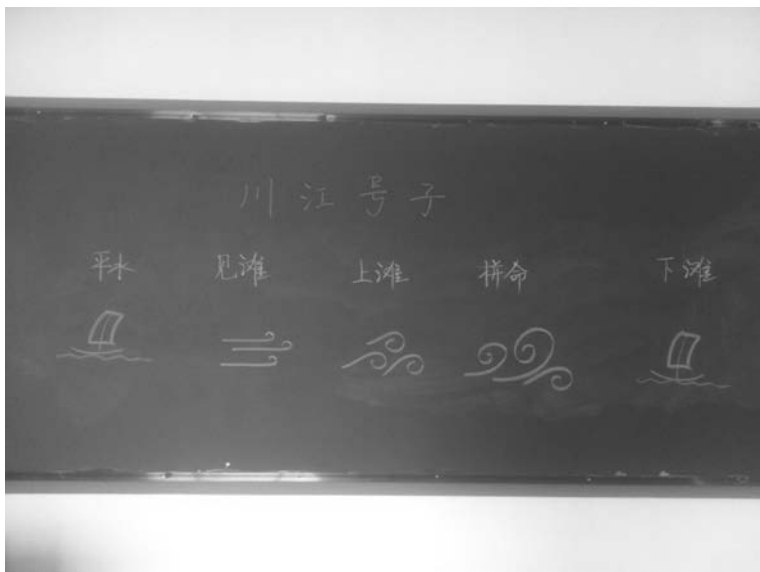 川江号子
平水 见滩 上滩 拼命 下滩